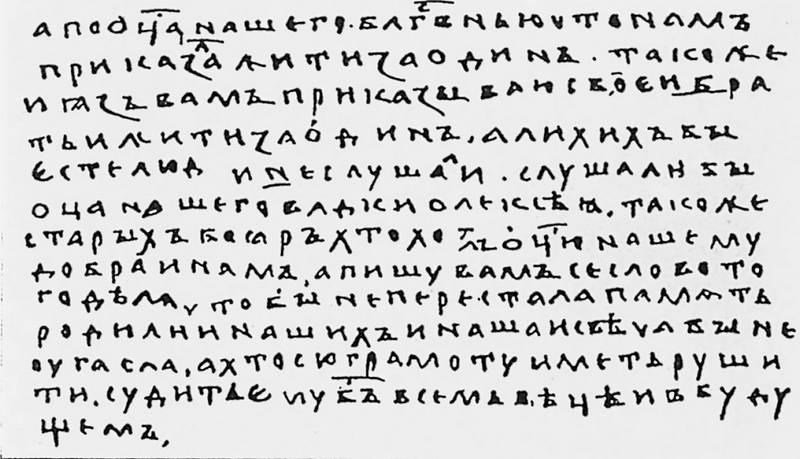 а по оц҃а нашего. блг҃вню что нам
приказал жити за одинъ. тако же
и ꙗзъ вамъ приказываю своеи бра
тьи жити за одинъ, а лихихъ бы
есте люд и не слушали. слушали бы
оц҃а нашего влдкы олексѣꙗ, тако же
старыхъ боꙗръ хто хотѣлъ оц҃ю нашему
добра и намъ, а пишу вамъ се слово то
го дѣлѧ, что бы не перестала памѧть
родилии нашихъ и наша и свѣча бы не
оугасла, а хто сю грамоту иметь руши
ти, судить ему бъ в семь вѣцѣ и в буду
щемь,